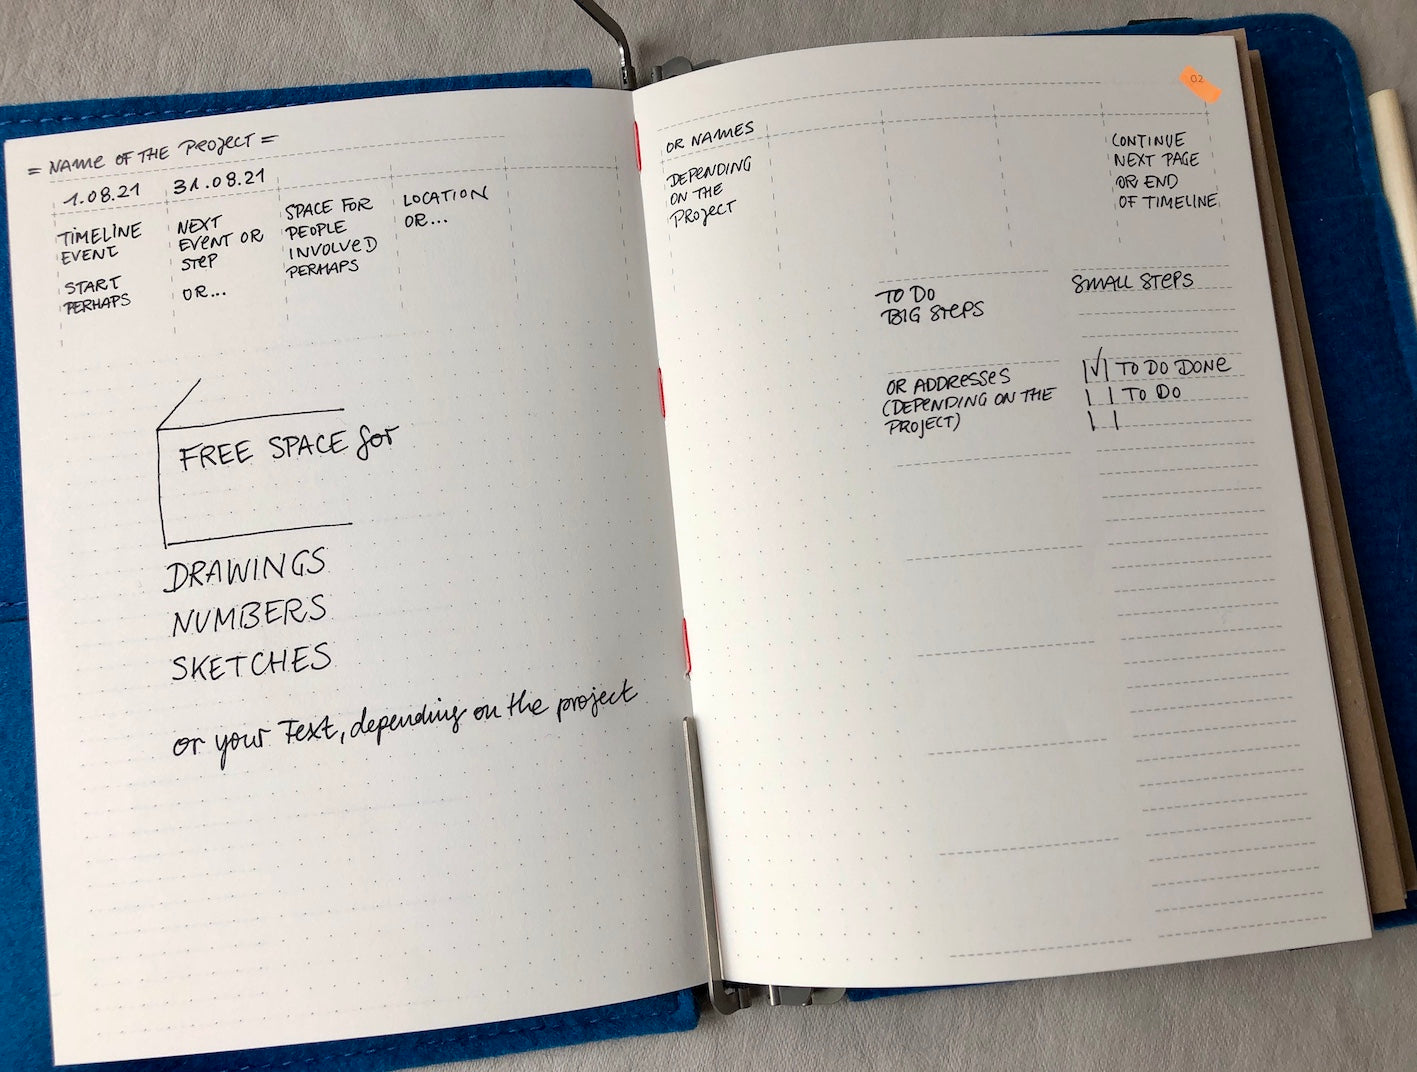 = NAME OF THE PROJECT =
1.08.21
31.08.21
TIMELINE
EVENT
START
PERHAPS
NEXT
EVENT OR
STEP
OR...
SPACE FOR
PEOPLE
INVOLVED
PERHAPS
LOCATION
OR...
FREE SPACE for
DRAWINGS
NUMBERS
SKETCHES
or your Text, depending on the project
02
OR NAMES
DEPENDING
ON THE
PROJECT
CONTINUE
NEXT PAGE
OR END
OF TIMELINE
TO DO
BIG STEPS
OR ADDRESSES
(DEPENDING ON THE
PROJECT)
SMALL STEPS
TO DO DONE
TO DO